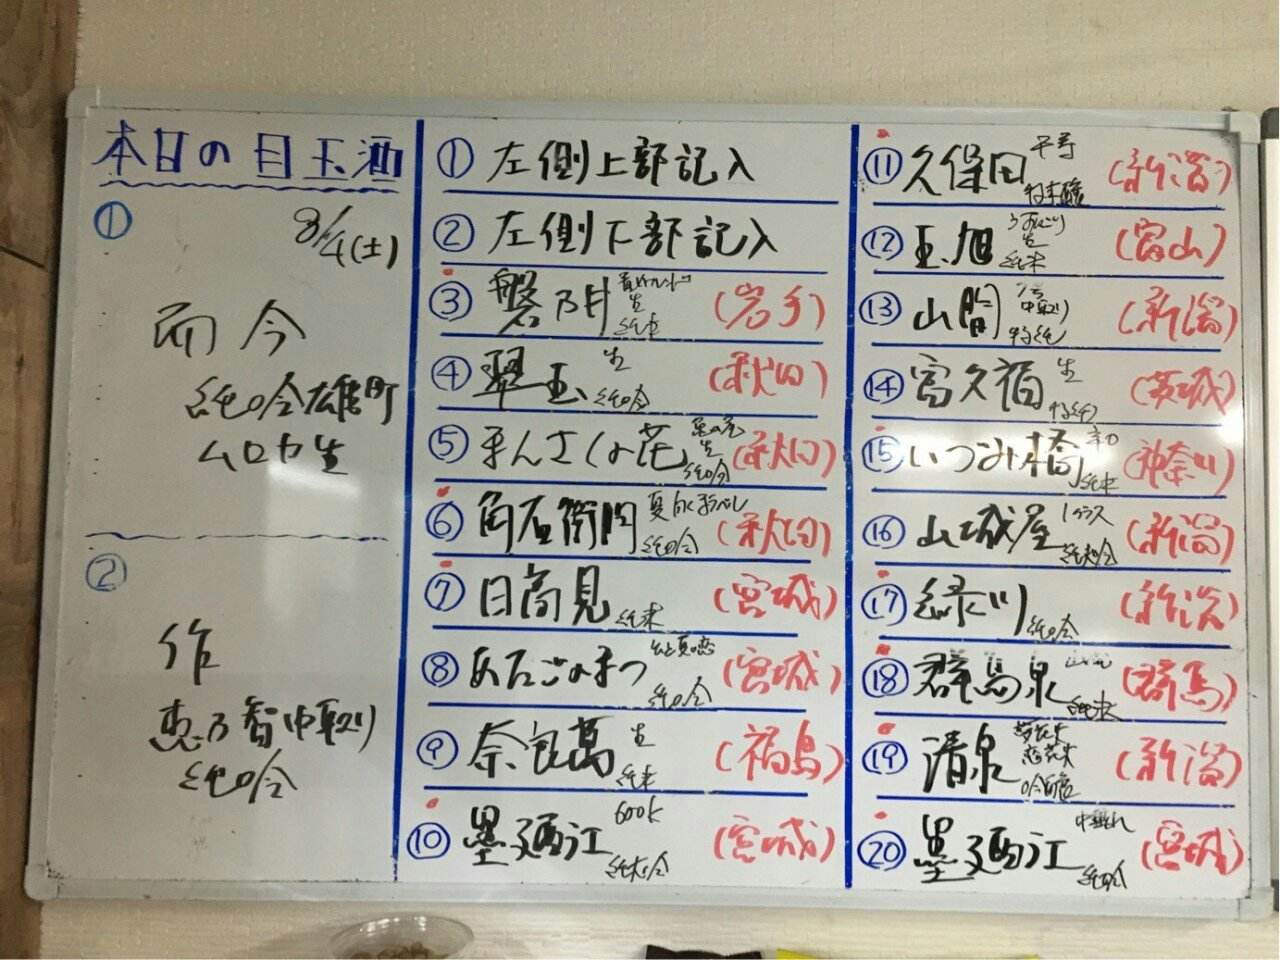 本日の目玉酒
① 8/4(土)
而今
純吟雄町
ムロカ生
②
作
恵乃智中取り
純吟
① 左側上部記入
② 左側下部記入
③ 磐乃井 生 純米 (岩手)
④ 翠玉 生 純吟 (秋田)
⑤ まんさくの花 生 純吟 (秋田)
⑥ 角右衛門 夏 純吟 (秋田)
⑦ 日高見 純米 (宮城)
⑧ あたごのまつ ひと夏の恋 純吟 (宮城)
⑨ 奈良萬 生 純米 (福島)
⑩ 墨廼江 600K 純大吟 (宮城)
⑪ 久保田 千寿 (新潟)
⑫ 玉旭 うすにごり 生 純米 (富山)
⑬ 山間 中取り 特純 (新潟)
⑭ 富久福 生 特純 (茨城)
⑮ いづみ橋 辛口 純米 (神奈川)
⑯ 山城屋 1グラス 純大吟 (新潟)
⑰ 緑川 純吟 (新潟)
⑱ 群馬泉 山廃 純米 (群馬)
⑲ 清泉 吟醸 (新潟)
⑳ 墨廼江 中垂れ 純吟 (宮城)